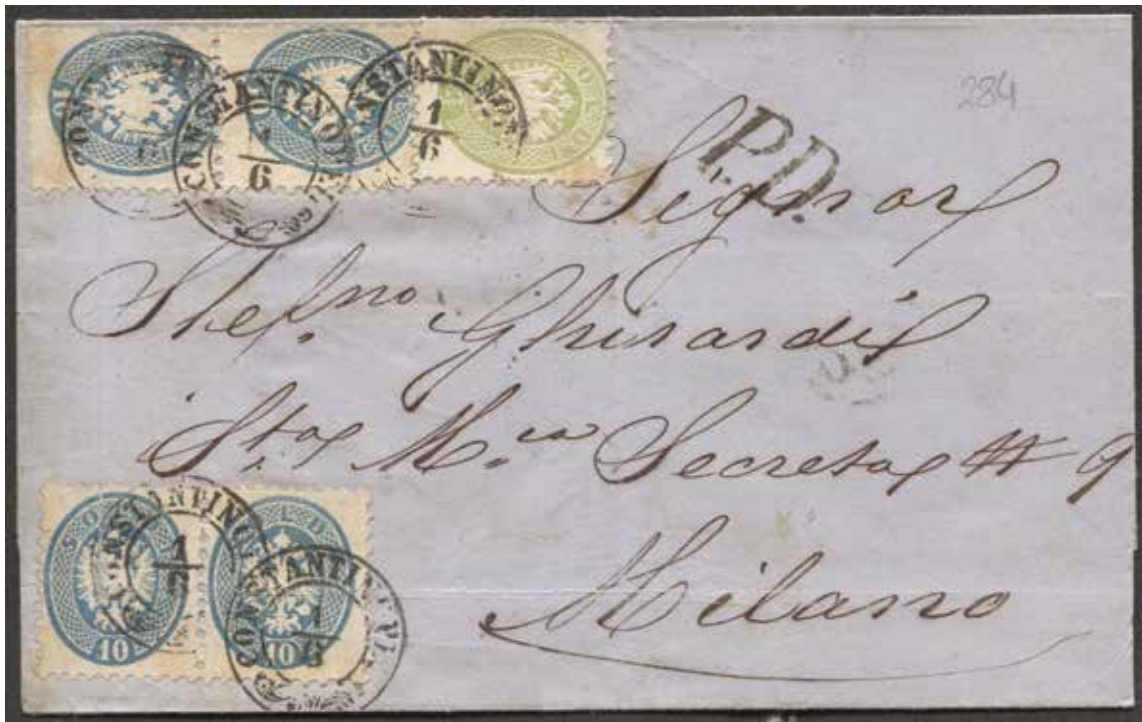 284
P.D.
CONSTANTINOPEL
1/6
CONSTANTINO
1/6
SOLDI
Signor
Stef.no Ghirardi
Sta M.ia Secreta # 9
Milano
CONSTANTINOP
1
10
CONSTANTINOPEL
1/6
10